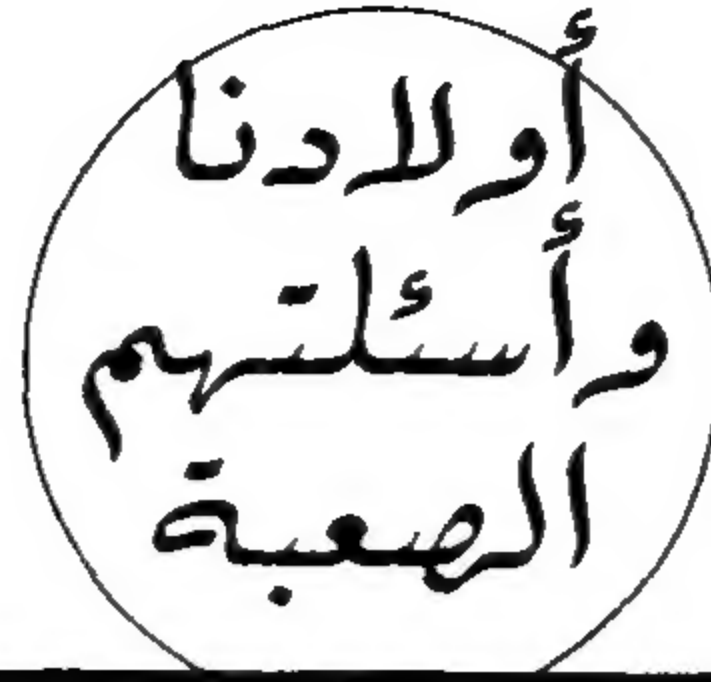 أولادنا
وأسئلتهم
الصعبة